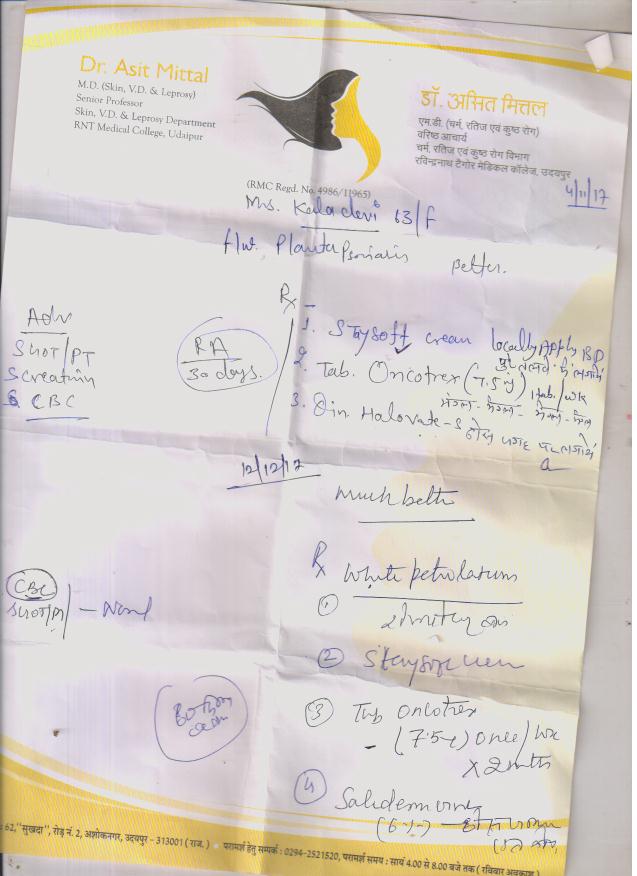 Dr. Asit Mittal
M.D. (Skin, V.D. & Leprosy)
Senior Professor
Skin, V.D. & Leprosy Department
RNT Medical College, Udaipur
डॉ. असित मित्तल
एम.डी. (चर्म, रतिज एवं कुष्ठ रोग)
वरिष्ठ आचार्य
चर्म, रतिज एवं कुष्ठ रोग विभाग
रविन्द्रनाथ टैगोर मेडिकल कॉलेज, उदयपुर
(RMC Regd. No. 4986/11965)
4/11/17
Mrs. Kaladevi 63/F
Plantar Psoriasis better.
Adv
SGOT/PT
S creatinin
CBC
RA
30 days.
Rx
1. Staysoft cream locally Apply BD
2. Tab. Oncotrex (7.5) 1 tab./wk
3. Oin. Halovate-S
12/12/17
Much better
CBC
SGOT/PT
Rx White petrolatum
①
② Staysoft
③ Tab Oncotrex
(7.5) once/wk
x 2 mths
④
(6%)
62, "सुखदा", रोड़ नं. 2, अशोकनगर, उदयपुर - 313001 ( राज. ) • परामर्श हेतु सम्पर्क : 0294-2521520, परामर्श समय : सायं 4.00 से 8.00 बजे तक ( रविवार अवकाश )